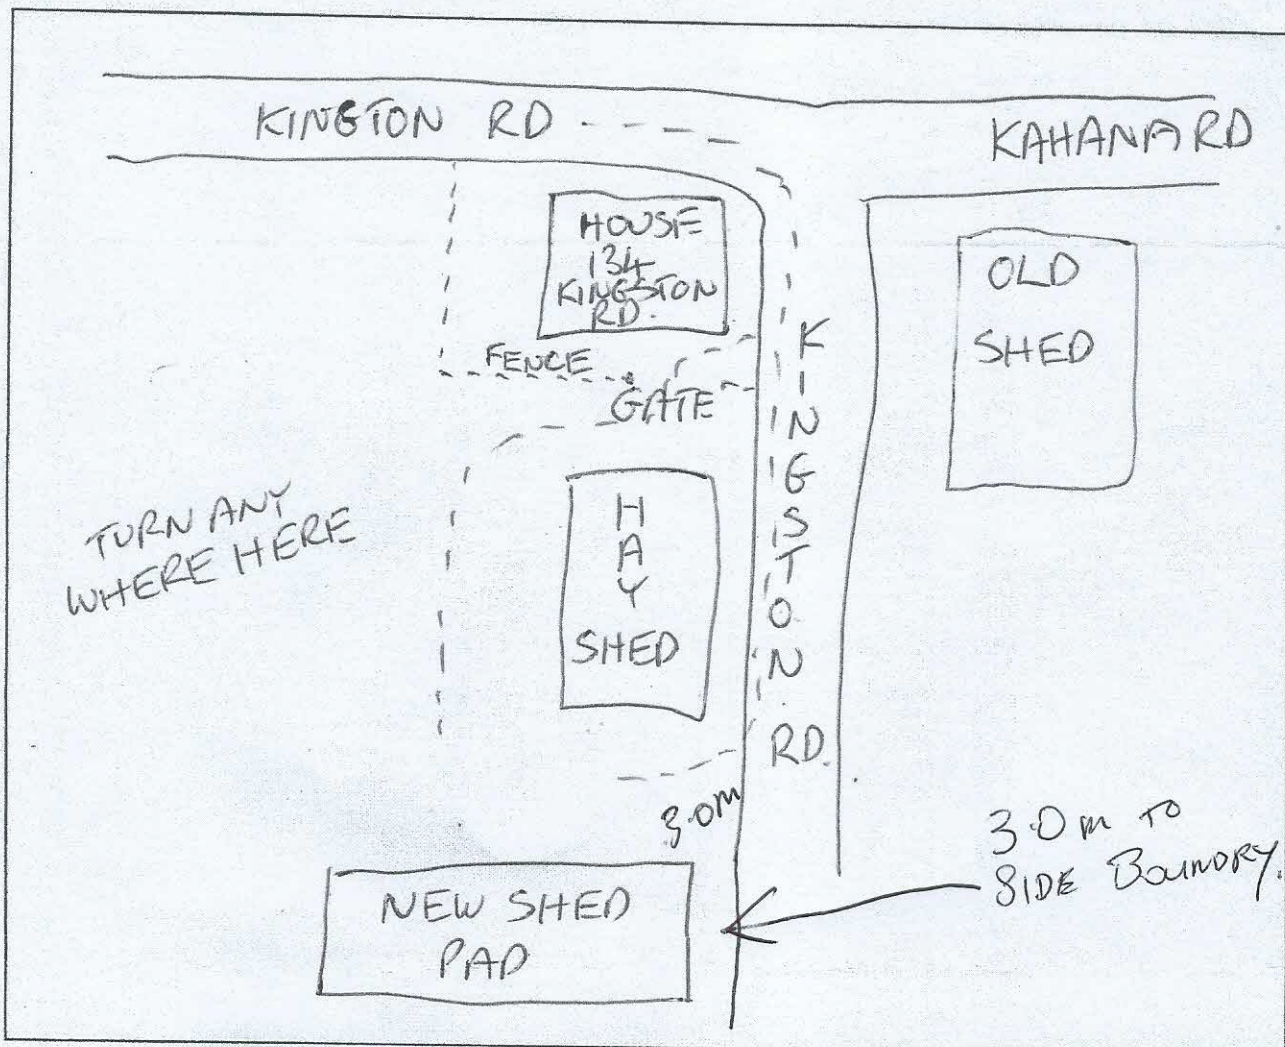 KINGTON RD
KAHANA RD
HOUSE
134
KINGSTON
RD.
OLD
SHED
FENCE
GATE
KINGSTON
RD.
TURN ANY
WHERE HERE
HAY
SHED
3.0m
3.0m TO
SIDE BOUNDRY.
NEW SHED
PAD